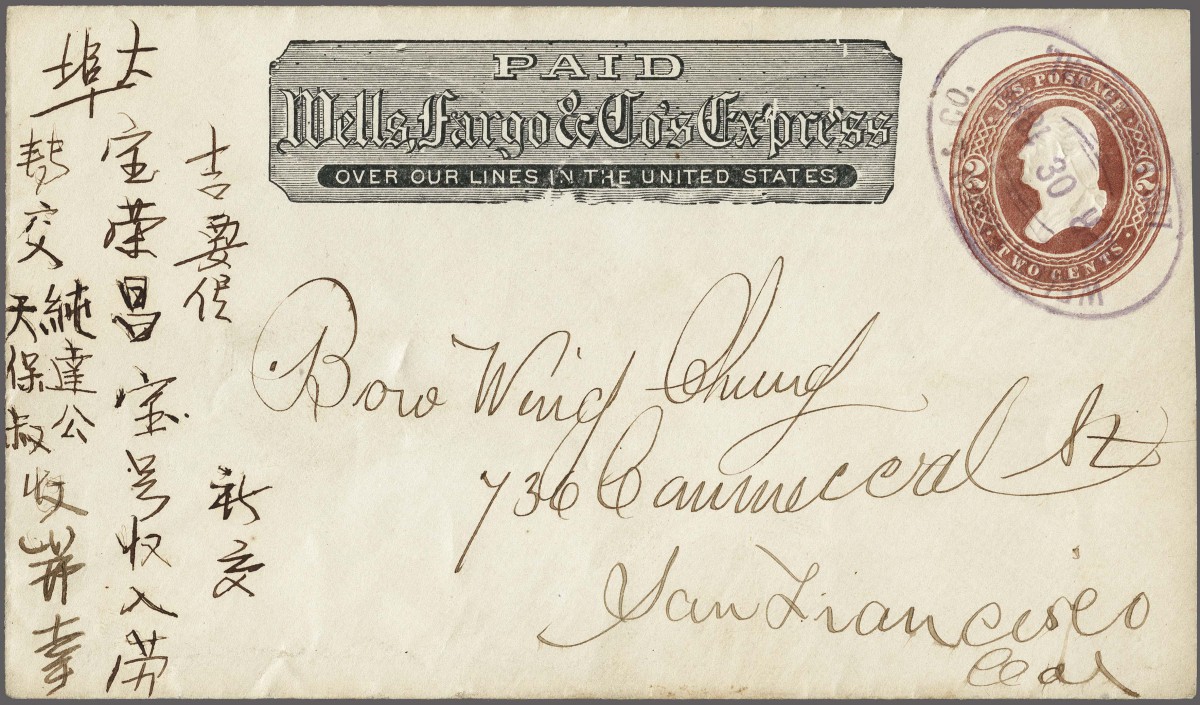 PAID
Wells, Fargo & Co's Express
OVER OUR LINES IN THE UNITED STATES
U.S. POSTAGE
2 2
TWO CENTS
CO.
30
Bow Wing Chung
736 Commercial St
San Francisco
Cal
吉要
交
大埠
宝荣昌宝号收入劳
交
純達公
天保叔收